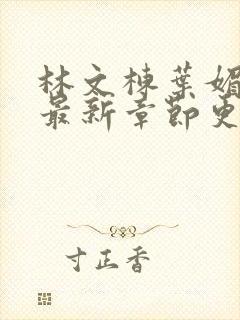 林文棟葉媚
最新章節更
寸正香